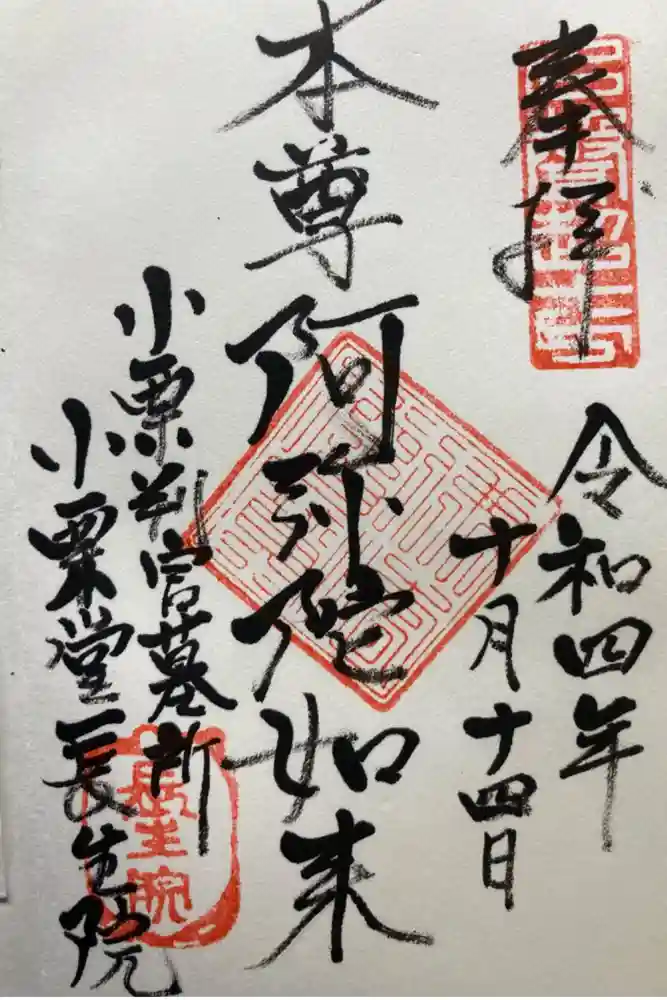 奉拝
令和四年
十月十四日
本尊阿弥陀如来
小栗判官墓所
小栗堂長生院
長生院